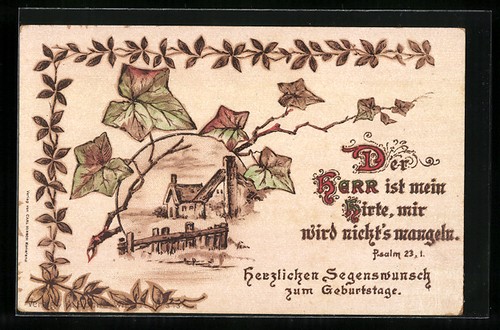 Der
HERR ist mein
Hirte, mir
wird nicht's mangeln.
Psalm 23, 1.
Herzlichen Segenswunsch
zum Geburtstage.